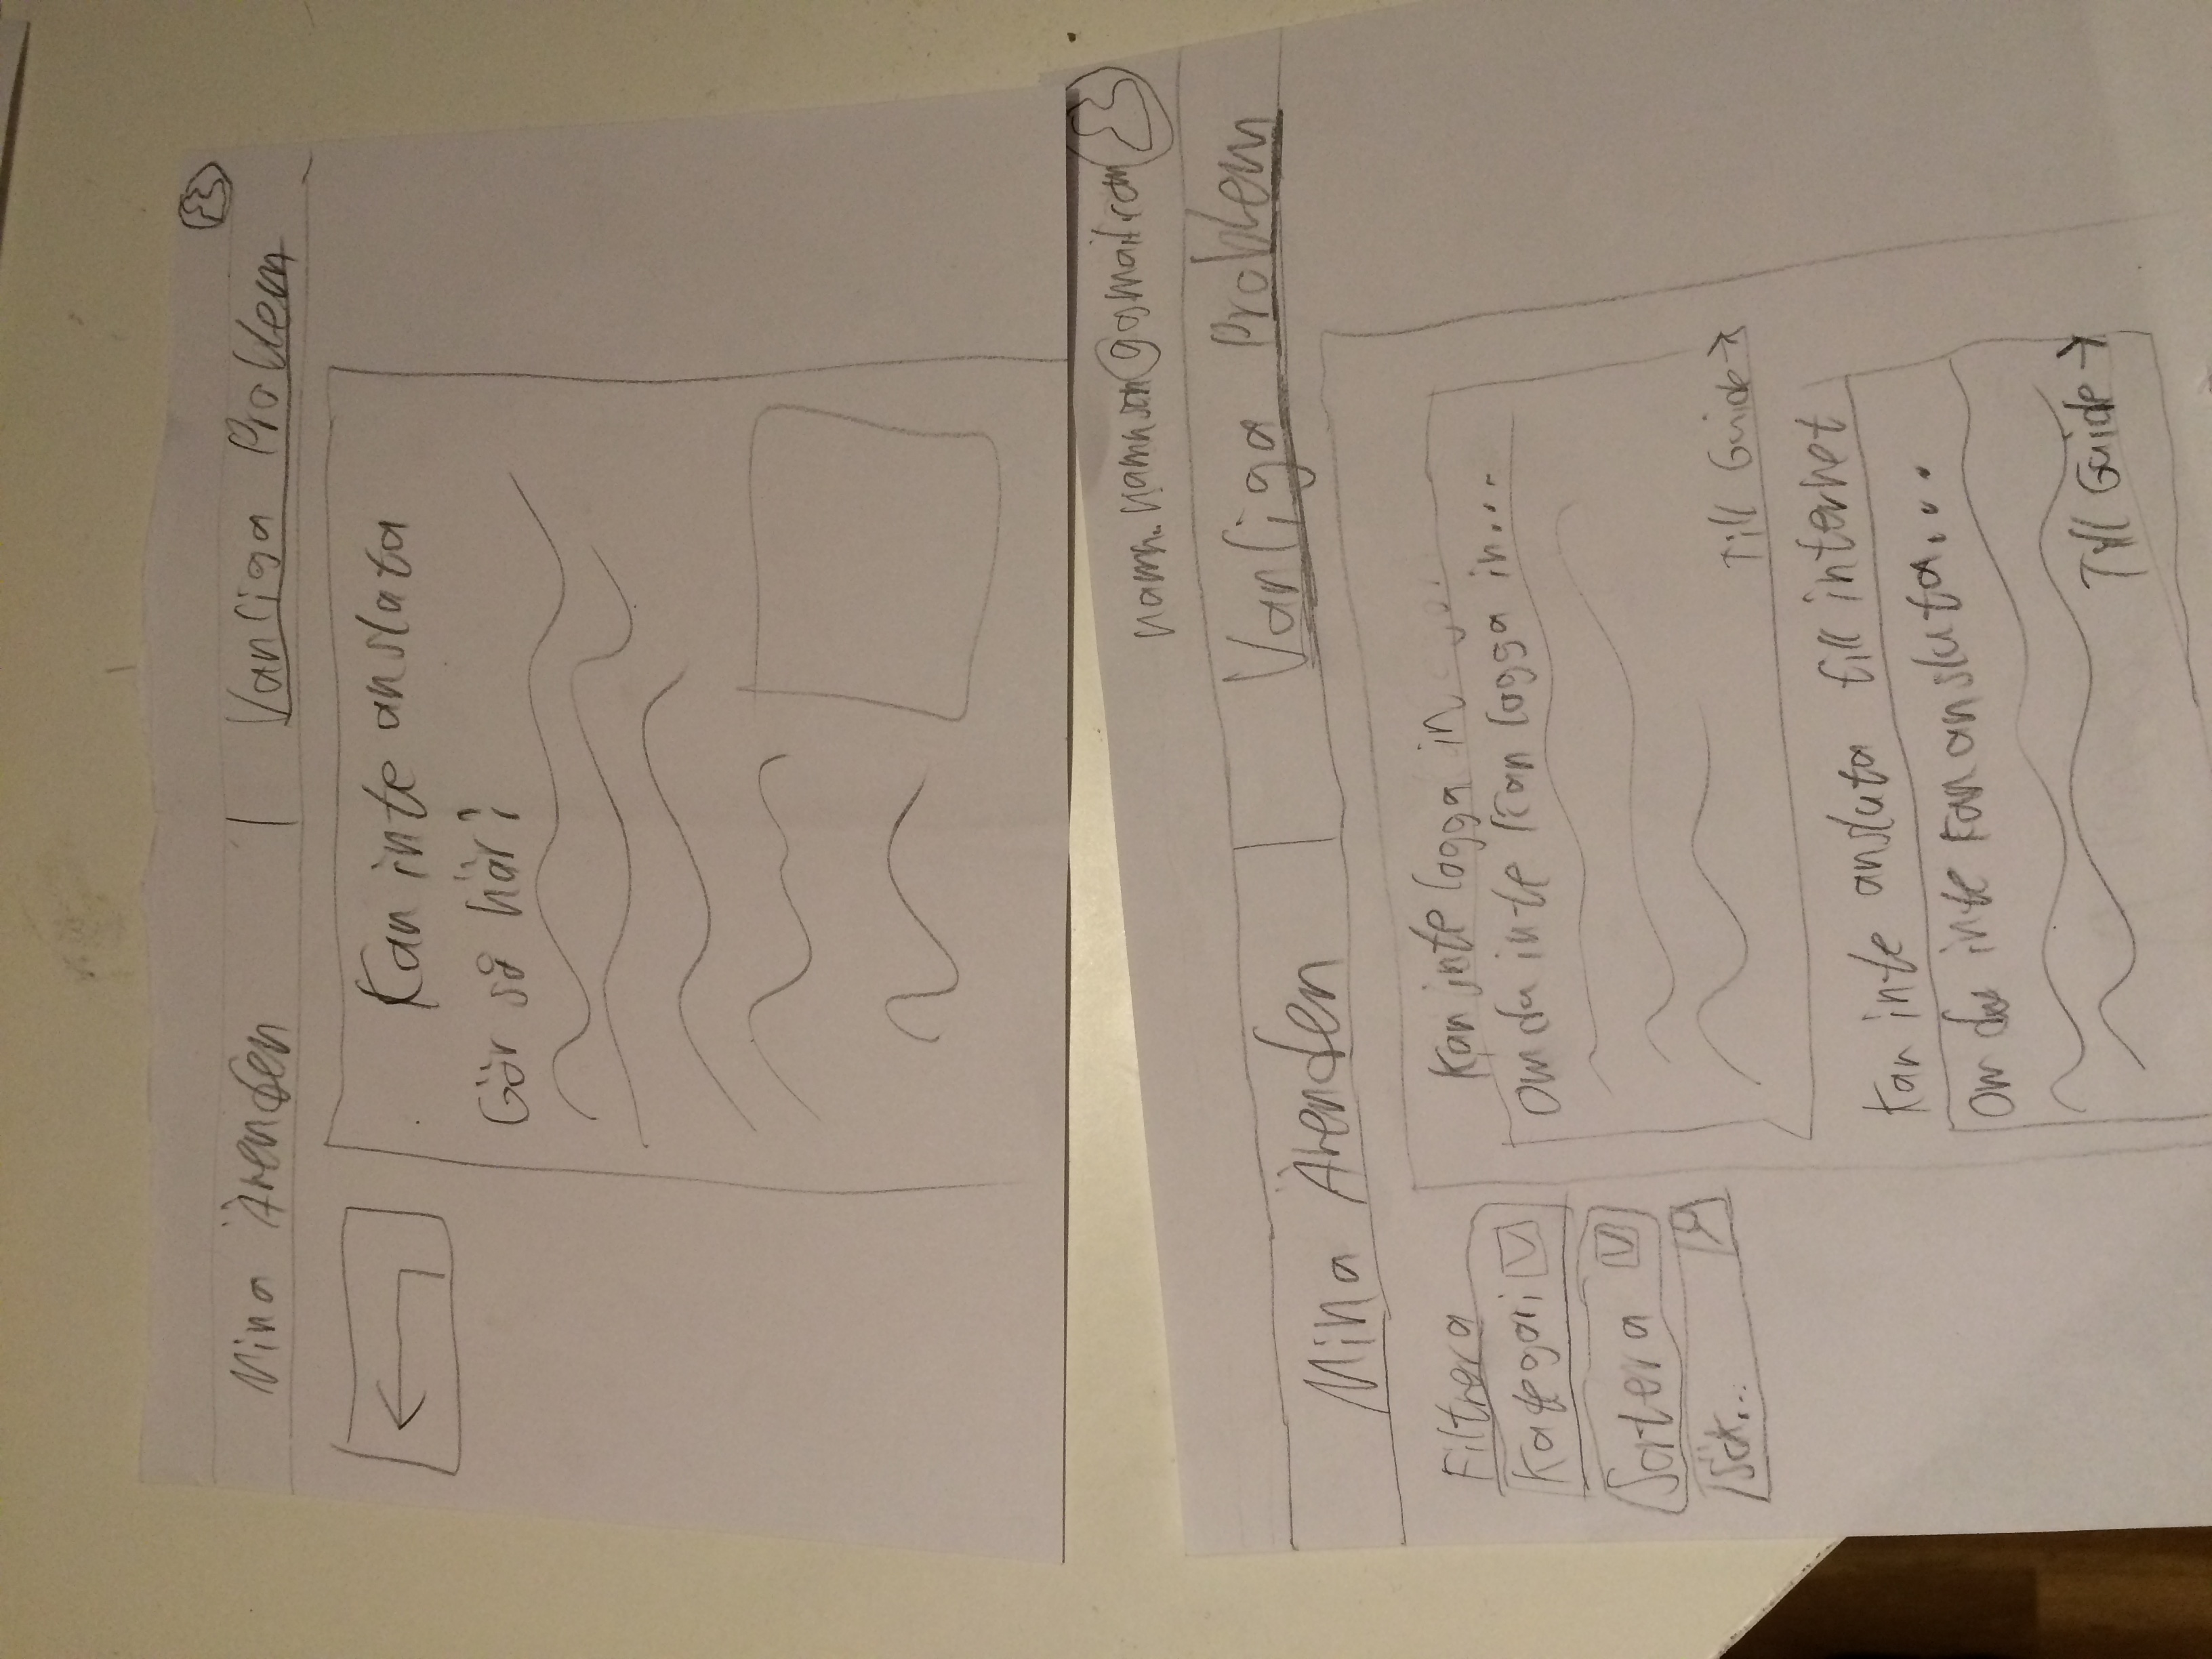 Mina Ärenden | Vanliga Problem
Kan inte ansluta
Gör så här:
namn.namnson@gmail.com
Mina Ärenden | Vanliga Problem
Filtrera
Kategori
Sortera
Sök...
Kan inte logga in
Om du inte kan logga in...
Till Guide →
Kan inte ansluta till internet
Om du inte kan ansluta...
Till Guide →